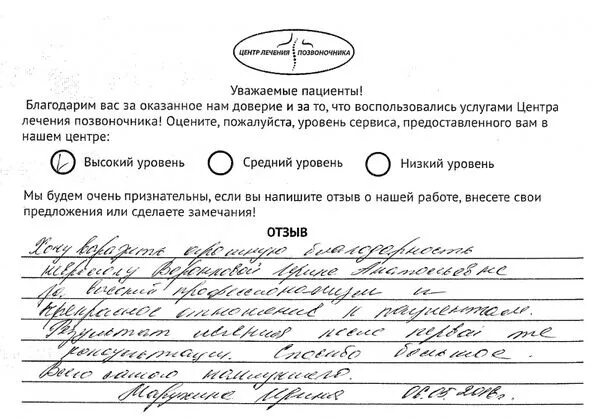 ЦЕНТР ЛЕЧЕНИЯ ПОЗВОНОЧНИКА
Уважаемые пациенты!
Благодарим вас за оказанное нам доверие и за то, что воспользовались услугами Центра
лечения позвоночника! Оцените, пожалуйста, уровень сервиса, предоставленного вам в
нашем центре:
Высокий уровень Средний уровень Низкий уровень
Мы будем очень признательны, если вы напишите отзыв о нашей работе, внесете свои
предложения или сделаете замечания!
ОТЗЫВ
Хочу выразить огромную благодарность
неврологу Воронковой Ирине Анатольевне
за высокий профессионализм и
прекрасное отношение к пациентам.
Результат лечения после первой же
консультации. Спасибо большое.
Всего самого наилучшего.
Ирина 06.05.2018г.